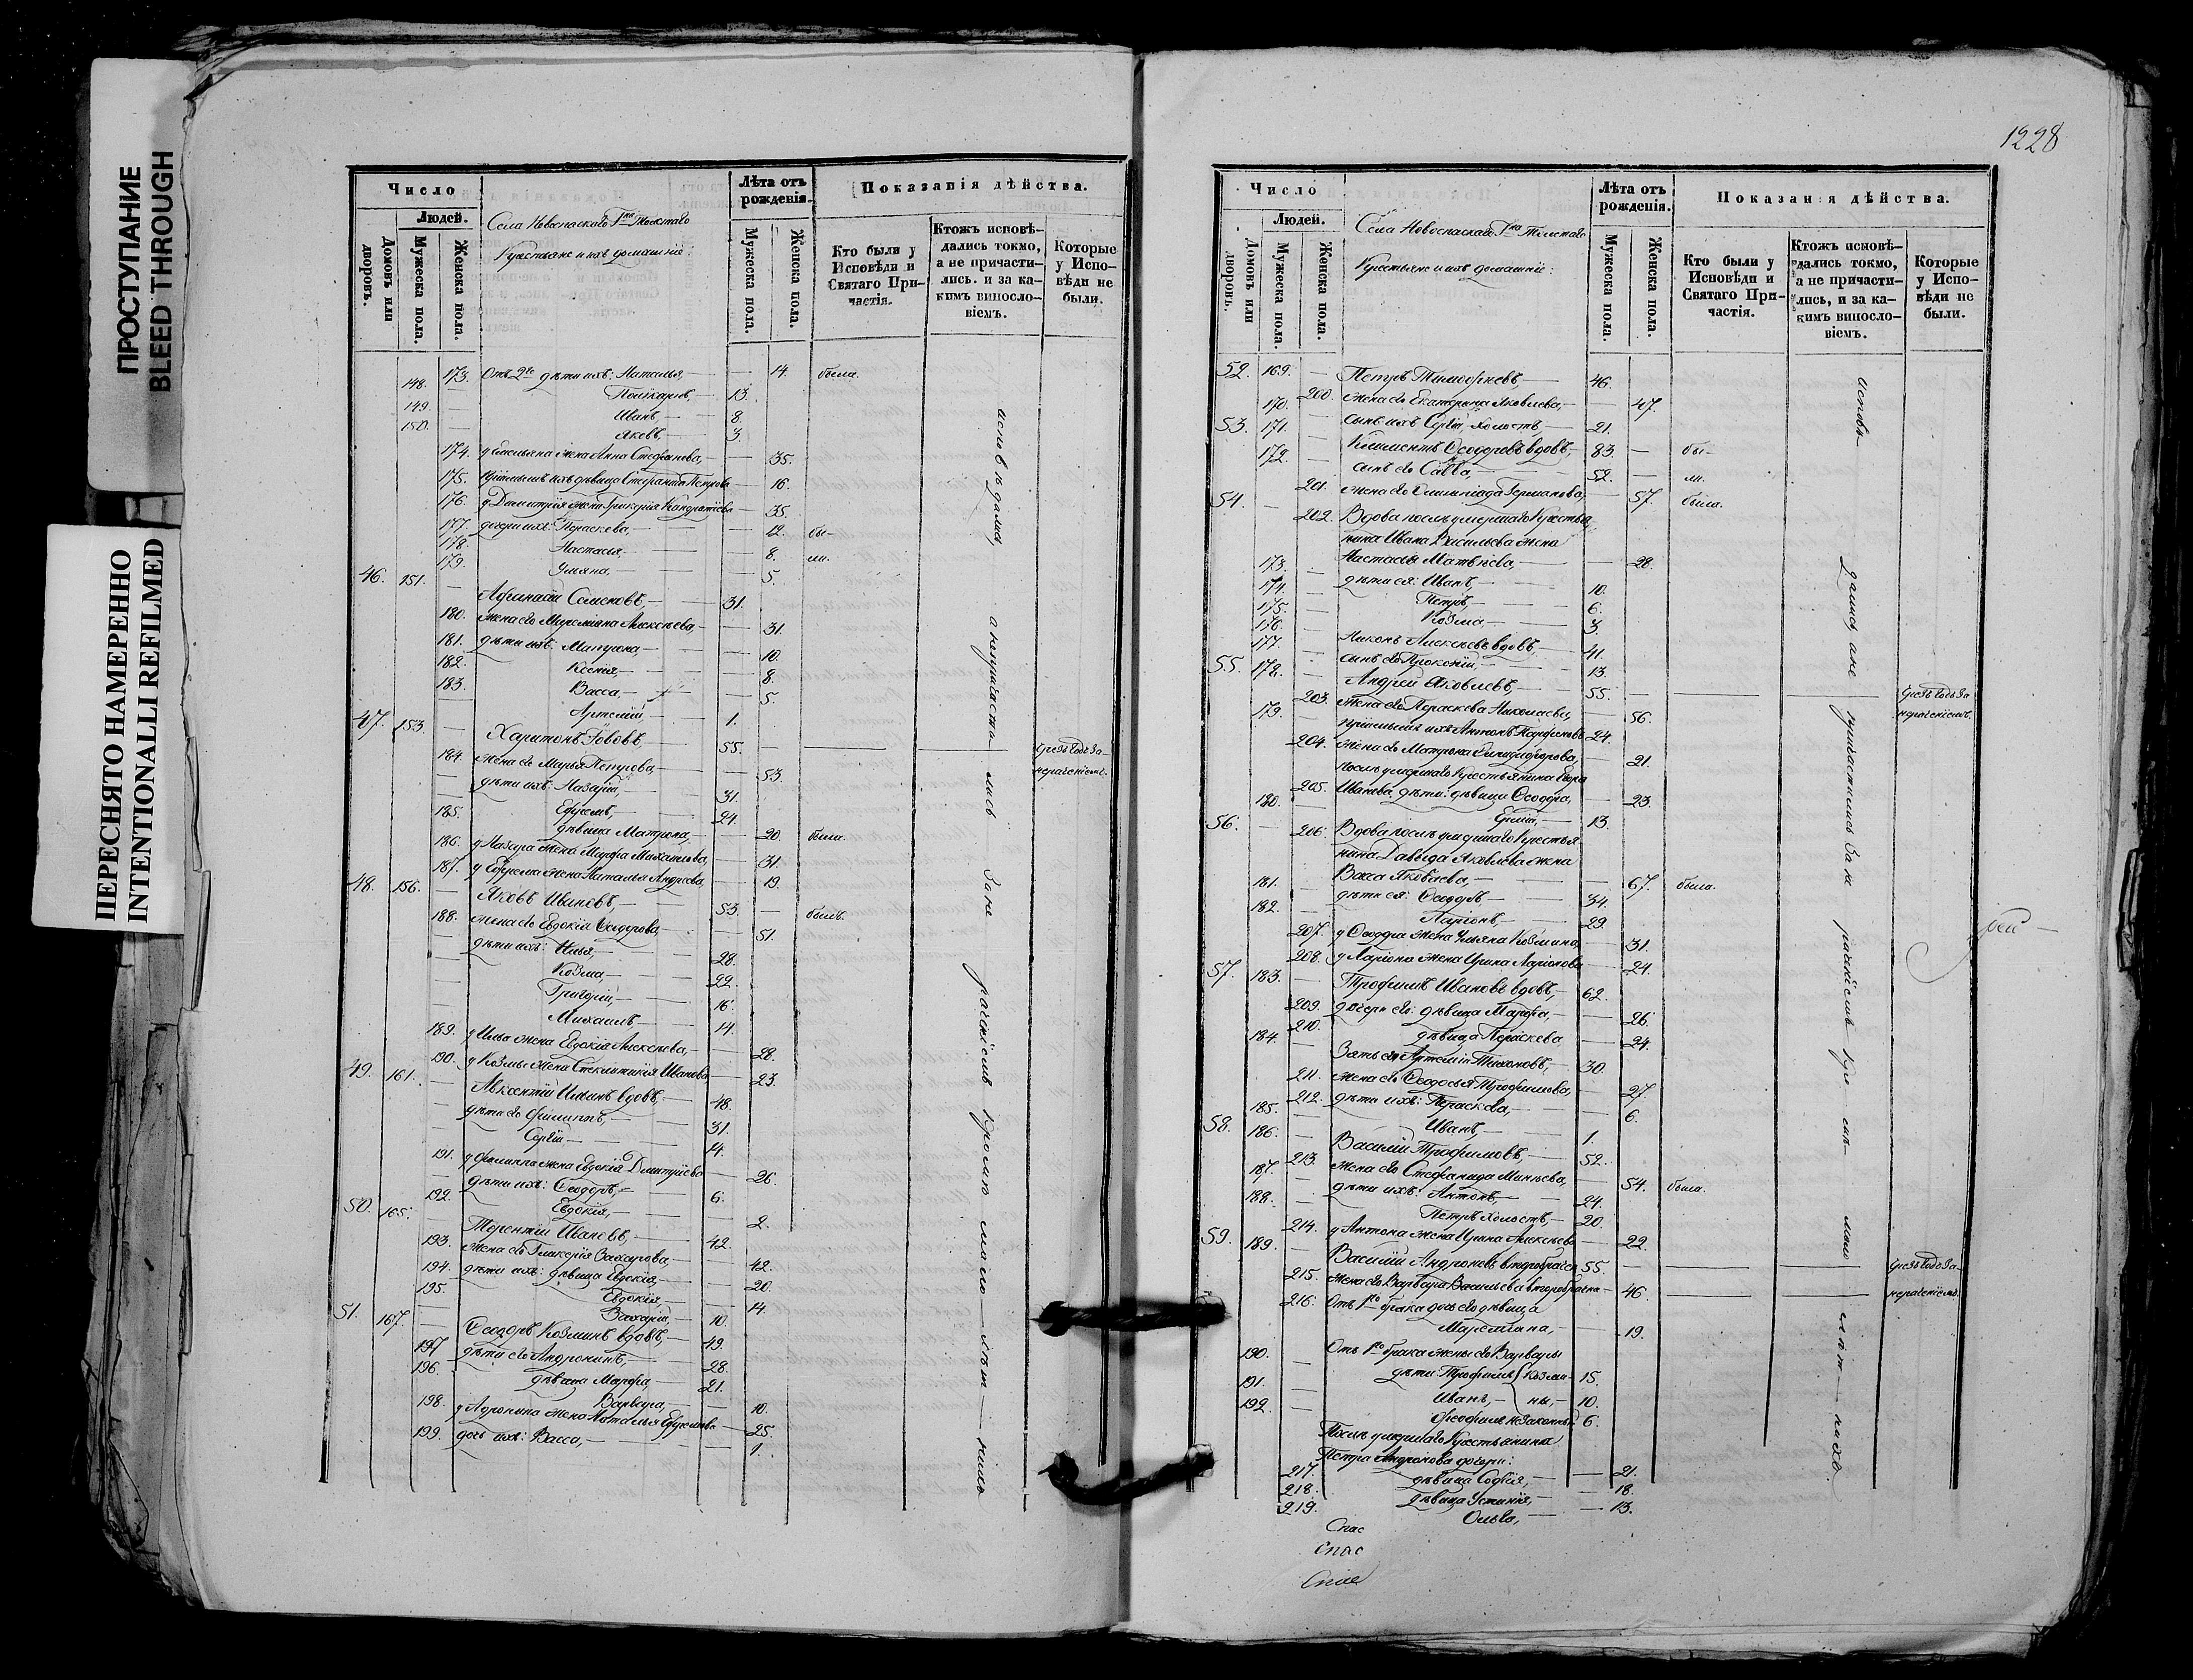 ПРОСТУПАНИЕ
BLEED THROUGH
ПЕРЕСНЯТО НАМЕРЕННО
INTENTIONALLI REFILMED
Число
Людей.
Домовъ или дворовъ.
Мужеска пола.
Женска пола.
Села Новоспаскаго Гна Толстаго
Крестьяне и ихъ домашніе:
Лѣта отъ рожденія.
Мужеска пола.
Женска пола.
Показанія дѣйства.
Кто были у Исповѣди и Святаго Причастія.
Ктожъ исповѣдались токмо, а не причастились. и за какимъ винословіемъ.
Которые у Исповѣди не были.
173. Отъ 2го дѣти ихъ: Наталья, — 14. была.
148. Поликарпъ, — 13.
149. Иванъ, — 8.
150. Яковъ, — 3.
174. у Емельяна жена Анна Стефанова, — 35.
175. 16.
176. у Димитрія жена Гликерія Кондратіева 35.
177. дочери ихъ: Параскева, — 12. бы-
178. Настасья, — 8. ли.
179. Ульяна, — 5.
46. 151. Афанасій Семеновъ, — 31.
180. жена его Алексѣева, — 31.
181. дѣти ихъ: Матрона, — 10.
182. Ксенія, — 8.
183. Васса, — 5.
Артемій, — 1.
47. 153. Харитонъ Іововъ, — 55. Чрезъ годъ за
184. жена его Марья Петрова, — 53. нераченіемъ.
дѣти ихъ: Назарій, — 31.
Ефремъ, — 24.
185. дѣвица Матрона, — 20. была.
186. у Назара жена Марфа Михайлова, — 31.
187. у Ефрема жена Наталья Андреева, 19.
48. 156. Яковъ Ивановъ, — 53. былъ.
188. жена его Евдокія Ѳедорова, — 51.
дѣти ихъ: Илья, — 28.
Козма, — 22.
Григорій, — 16.
Михаилъ, — 14.
189. у Ильи жена Евдокія Алексѣева, — 28.
190. у Козмы жена Стеклитикія Иванова 23.
49. 161. Авксентій Ильинъ вдовъ, — 48.
дѣти его Филиппъ, — 31.
Сергій — 14.
191. у Филиппа жена Евдокія Дмитріева 26.
дѣти ихъ: Ѳеодоръ, — 6.
192. Евдокія, — 2.
50. 165. Терентій Ивановъ, — 42.
193. жена его Гликерія Захарова, — 42.
194. дѣти ихъ: дѣвица Евдокія, — 20.
195. Евдокія, — 14.
Захарій, — 10.
51. 167. Ѳеодоръ Козминъ вдовъ, — 49.
197 дѣти его Андроникъ, — 28.
196. дѣвица Марфа, — 21.
Варвара, — 10.
198. у Адроника жена Наталья Ефремова 25.
199. дочь ихъ: Васса, — 1.
исповѣдались, а непричастились за нераченіемъ кромѣ мало-лѣт-нихъ
1228
Число
Людей.
Домовъ или дворовъ.
Мужеска пола.
Женска пола.
Села Новоспаскаго Гна Толстаго
Крестьяне и ихъ домашніе:
Лѣта отъ рожденія.
Мужеска пола.
Женска пола.
Показанія дѣйства.
Кто были у Исповѣди и Святаго Причастія.
Ктожъ исповѣдались токмо, а не причастились, и за какимъ винословіемъ.
Которые у Исповѣди не были.
52. 169. Петръ Тимофеевъ, — 46.
200. жена его Екатерина Яковлева, — 47.
170. сынъ ихъ Сергій, холостъ, — 21.
53. 171. Климентъ Ѳеодоровъ вдовъ, — 83. бы-
172. сынъ его Савва, — 52. ли.
201. жена его Олимпіада Германова, 57. была.
54. 202. Вдова послѣ умершаго Крестья-
нина Ивана Васильева жена
Настасья Матвѣева, — 28.
173. дѣти ея: Иванъ, — 10.
174. Петръ, — 6.
175. Козма, — 3.
176. Никонъ Алексѣевъ вдовъ, — 41.
177. сынъ его Прокопій, — 13.
55. 178. Андрей Яковлевъ, — 55. Чрезъ годъ за
203. жена его Параскева Николаева, 56. нераченіемъ.
179. пріемышъ ихъ Антонъ Парфеновъ 24.
204. жена его Матрона Никифорова, 21.
послѣ умершаго Крестьянина
205. Иванова дѣти: дѣвица Ѳеодора, 23.
180. 13.
56. 206. Вдова послѣ умершаго Крестья-
нина Давыда Яковлева жена
Васса Яковлева, — 67. была.
181. дѣти ея: Ѳеодоръ, — 34.
182. Ларіонъ, — 29.
207. у Ѳеодора жена Ульяна Козмина, 31.
208. у Ларіона жена Ирина Ларіонова 24.
57. 183. Трофимъ Ивановъ вдовъ, — 62.
209. дочери его: дѣвица Марфа, — 26.
210. дѣвица Параскева 24.
184. Зять его Артемій Тихоновъ, — 30.
211. жена его Ѳеодосья Трофимова, 27.
212. дѣти ихъ: Параскева, — 6.
185. Иванъ, — 1.
58. 186. Василій Трофимовъ, — 52.
213. жена его Стефанида Минѣева, — 54. была.
187. дѣти ихъ: Антонъ, — 24.
188. Петръ холостъ, — 20.
214. у Антона жена Ирина Алексѣева 22.
59. 189. Василій Андроновъ второбрачен. 55. Чрезъ годъ за
215. жена его Варвара Васильева второбрачна 46. нераченіемъ.
216. отъ 1го брака дочь его дѣвица
— 19.
Отъ 1го брака жены его Варвары
190. дѣти: Трофимъ Козми- 15.
191. Иванъ, — ны, — 10.
192. Ѳеофилъ незаконный 6.
Послѣ умершаго Крестьянина
Петра Андронова дочери:
217. дѣвица Софія, — 21.
218. дѣвица Устинія, — 18.
219. Ольга, — 13.
исповѣдались, а не причастились за нераченіемъ кромѣ мало-лѣт-нихъ.
рей —
Спас
Спас
Спас